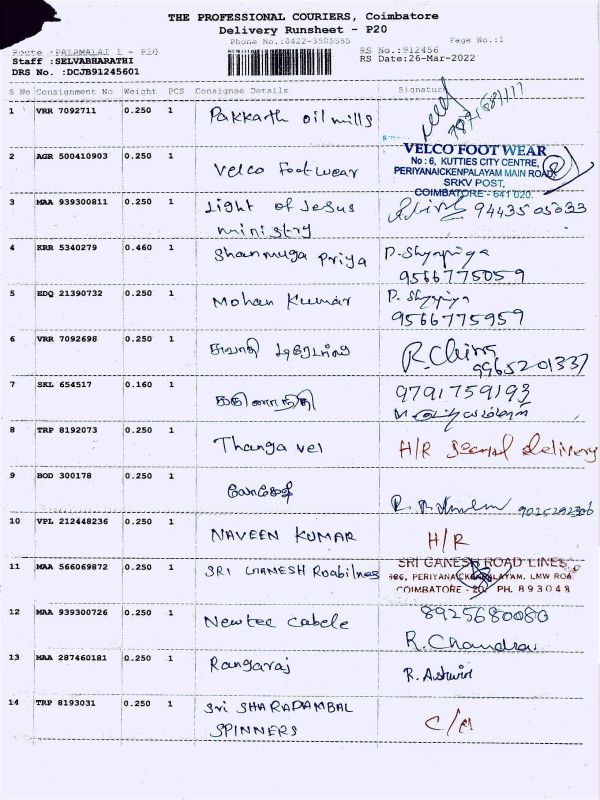 THE PROFESSIONAL COURIERS, Coimbatore
Delivery Runsheet - P20
Phone No.:0422-3505555
Page No.:1
Route :PALAMALAI 1 - P20
RS No.:912456
Staff :SELVABHARATHI
RS Date:26-Mar-2022
DRS No. :DCJB91245601
S No Consignment No Weight PCS Consignee Details Signature
1 VRR 7092711 0.250 1 Pakkarth oil mills
2 AGR 500410903 0.250 1 Velco Footwear
VELCO FOOT WEAR
No : 6, KUTTIES CITY CENTRE,
PERIYANAICKENPALAYAM MAIN ROAD
SRKV POST,
COIMBATORE - 641 020.
3 MAA 939300811 0.250 1 Light of Jesus 94435 05033
ministry
4 KRR 5340279 0.460 1 Shanmuga Priya
9566775059
5 EDQ 21390732 0.250 1 Mohan Kumar
9566775959
6 VRR 7092698 0.250 1 9965201337
7 SKL 654517 0.160 1 9791759193
8 TRP 8192073 0.250 1 Thangavel H/R Second delivery
9 BOD 300178 0.250 1
10 VPL 212448236 0.250 1 NAVEEN KUMAR H/R
11 MAA 566069872 0.250 1 SRI GANESH Roadlines
SRI GANESH ROAD LINES
386, PERIYANAICKENPALAYAM, LMW ROA
COIMBATORE - 20. PH. 893048
12 MAA 939300726 0.250 1 Newtec Cabele 8925680080
R. Chandra
13 MAA 287460181 0.250 1 Rangaraj R. Ashwin
14 TRP 8193031 0.250 1 Sri SHARADAMBAL
SPINNERS